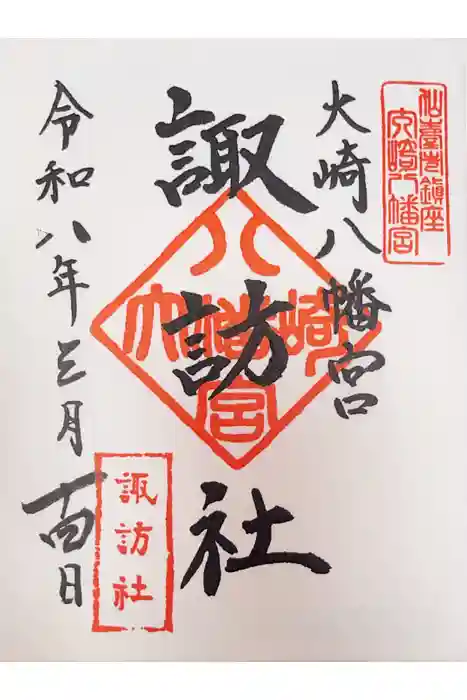 仙臺市鎮座
大崎八幡宮
大崎八幡宮
諏訪社
大崎八幡宮
令和八年三月十四日
諏訪社